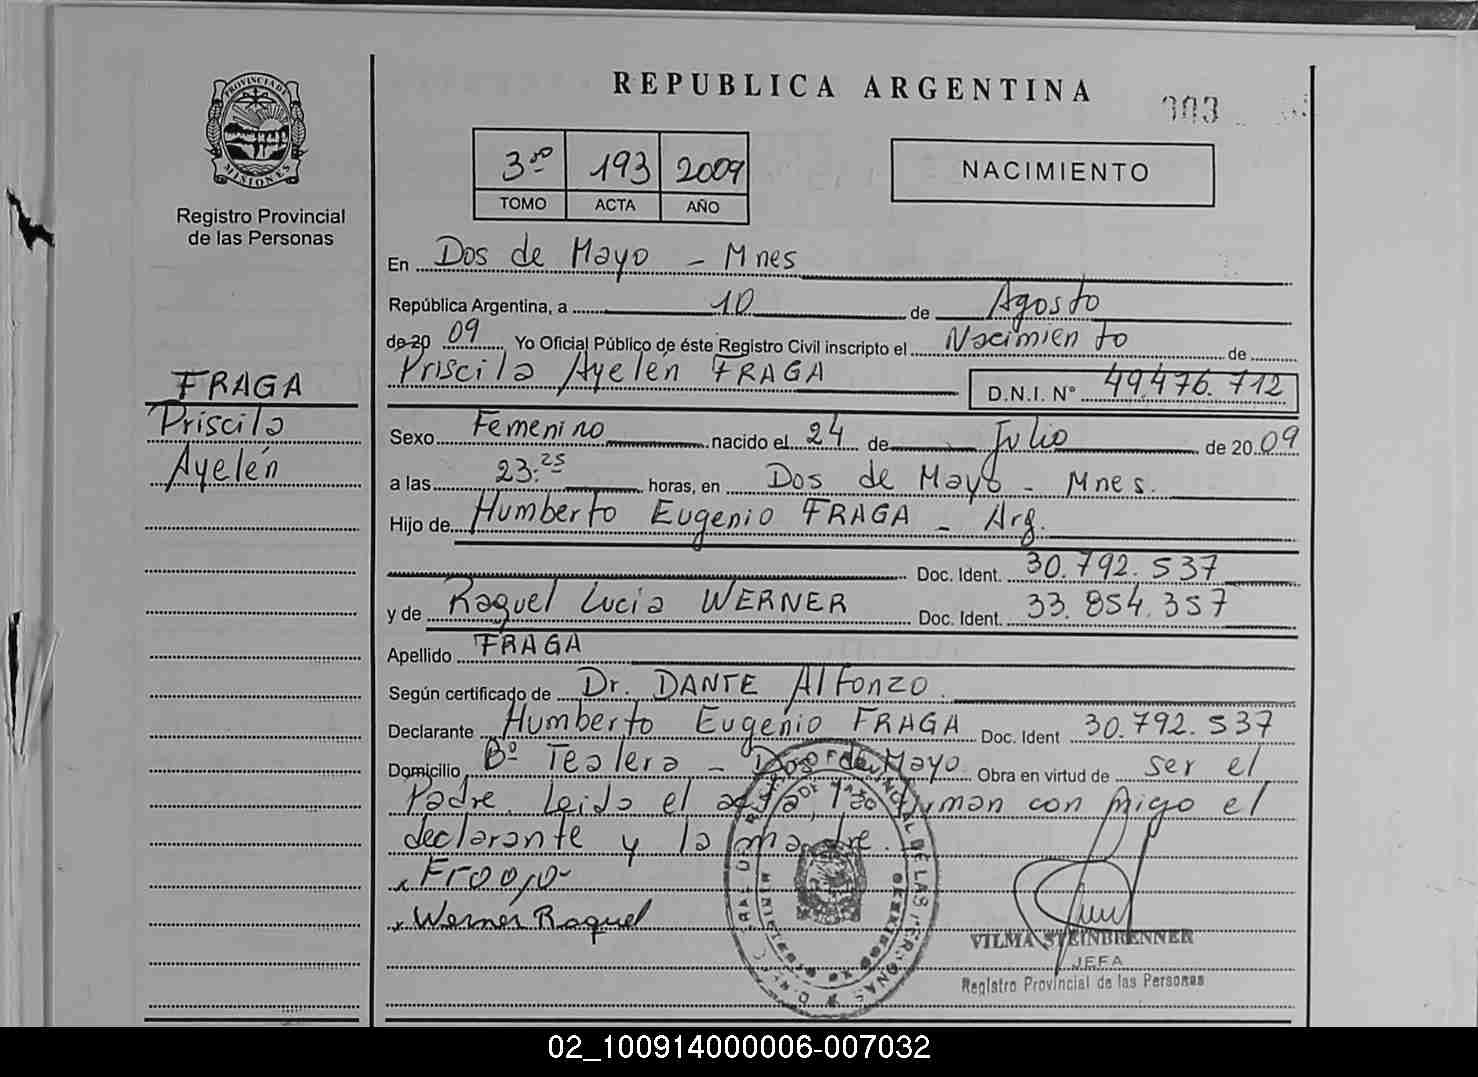 PROVINCIA DE
MISIONES
Registro Provincial
de las Personas
FRAGA
Priscila
Ayelén
REPUBLICA ARGENTINA
303
3ro 193 2009
TOMO ACTA AÑO
NACIMIENTO
En Dos de Mayo - Mnes
República Argentina, a 10 de Agosto
de 20 09 Yo Oficial Público de éste Registro Civil inscripto el Nacimiento de
Priscila Ayelén FRAGA D.N.I. N° 49.476.712
Sexo Femenino nacido el 24 de Julio de 20 09
a las 23:25 horas, en Dos de Mayo - Mnes.
Hijo de Humberto Eugenio FRAGA - Arg.
Doc. Ident. 30.792.537
y de Raquel Lucia WERNER Doc. Ident. 33.854.357
Apellido FRAGA
Según certificado de Dr. DANTE Alfonzo
Declarante Humberto Eugenio FRAGA Doc. Ident 30.792.537
Domicilio Bº Tealera - Dos de Mayo Obra en virtud de ser el
Padre. Leida el acta, la firman con migo el
declarante y la madre.
Werner Raquel
VILMA STEINBRENNER
JEFA
Registro Provincial de las Personas
02_100914000006-007032